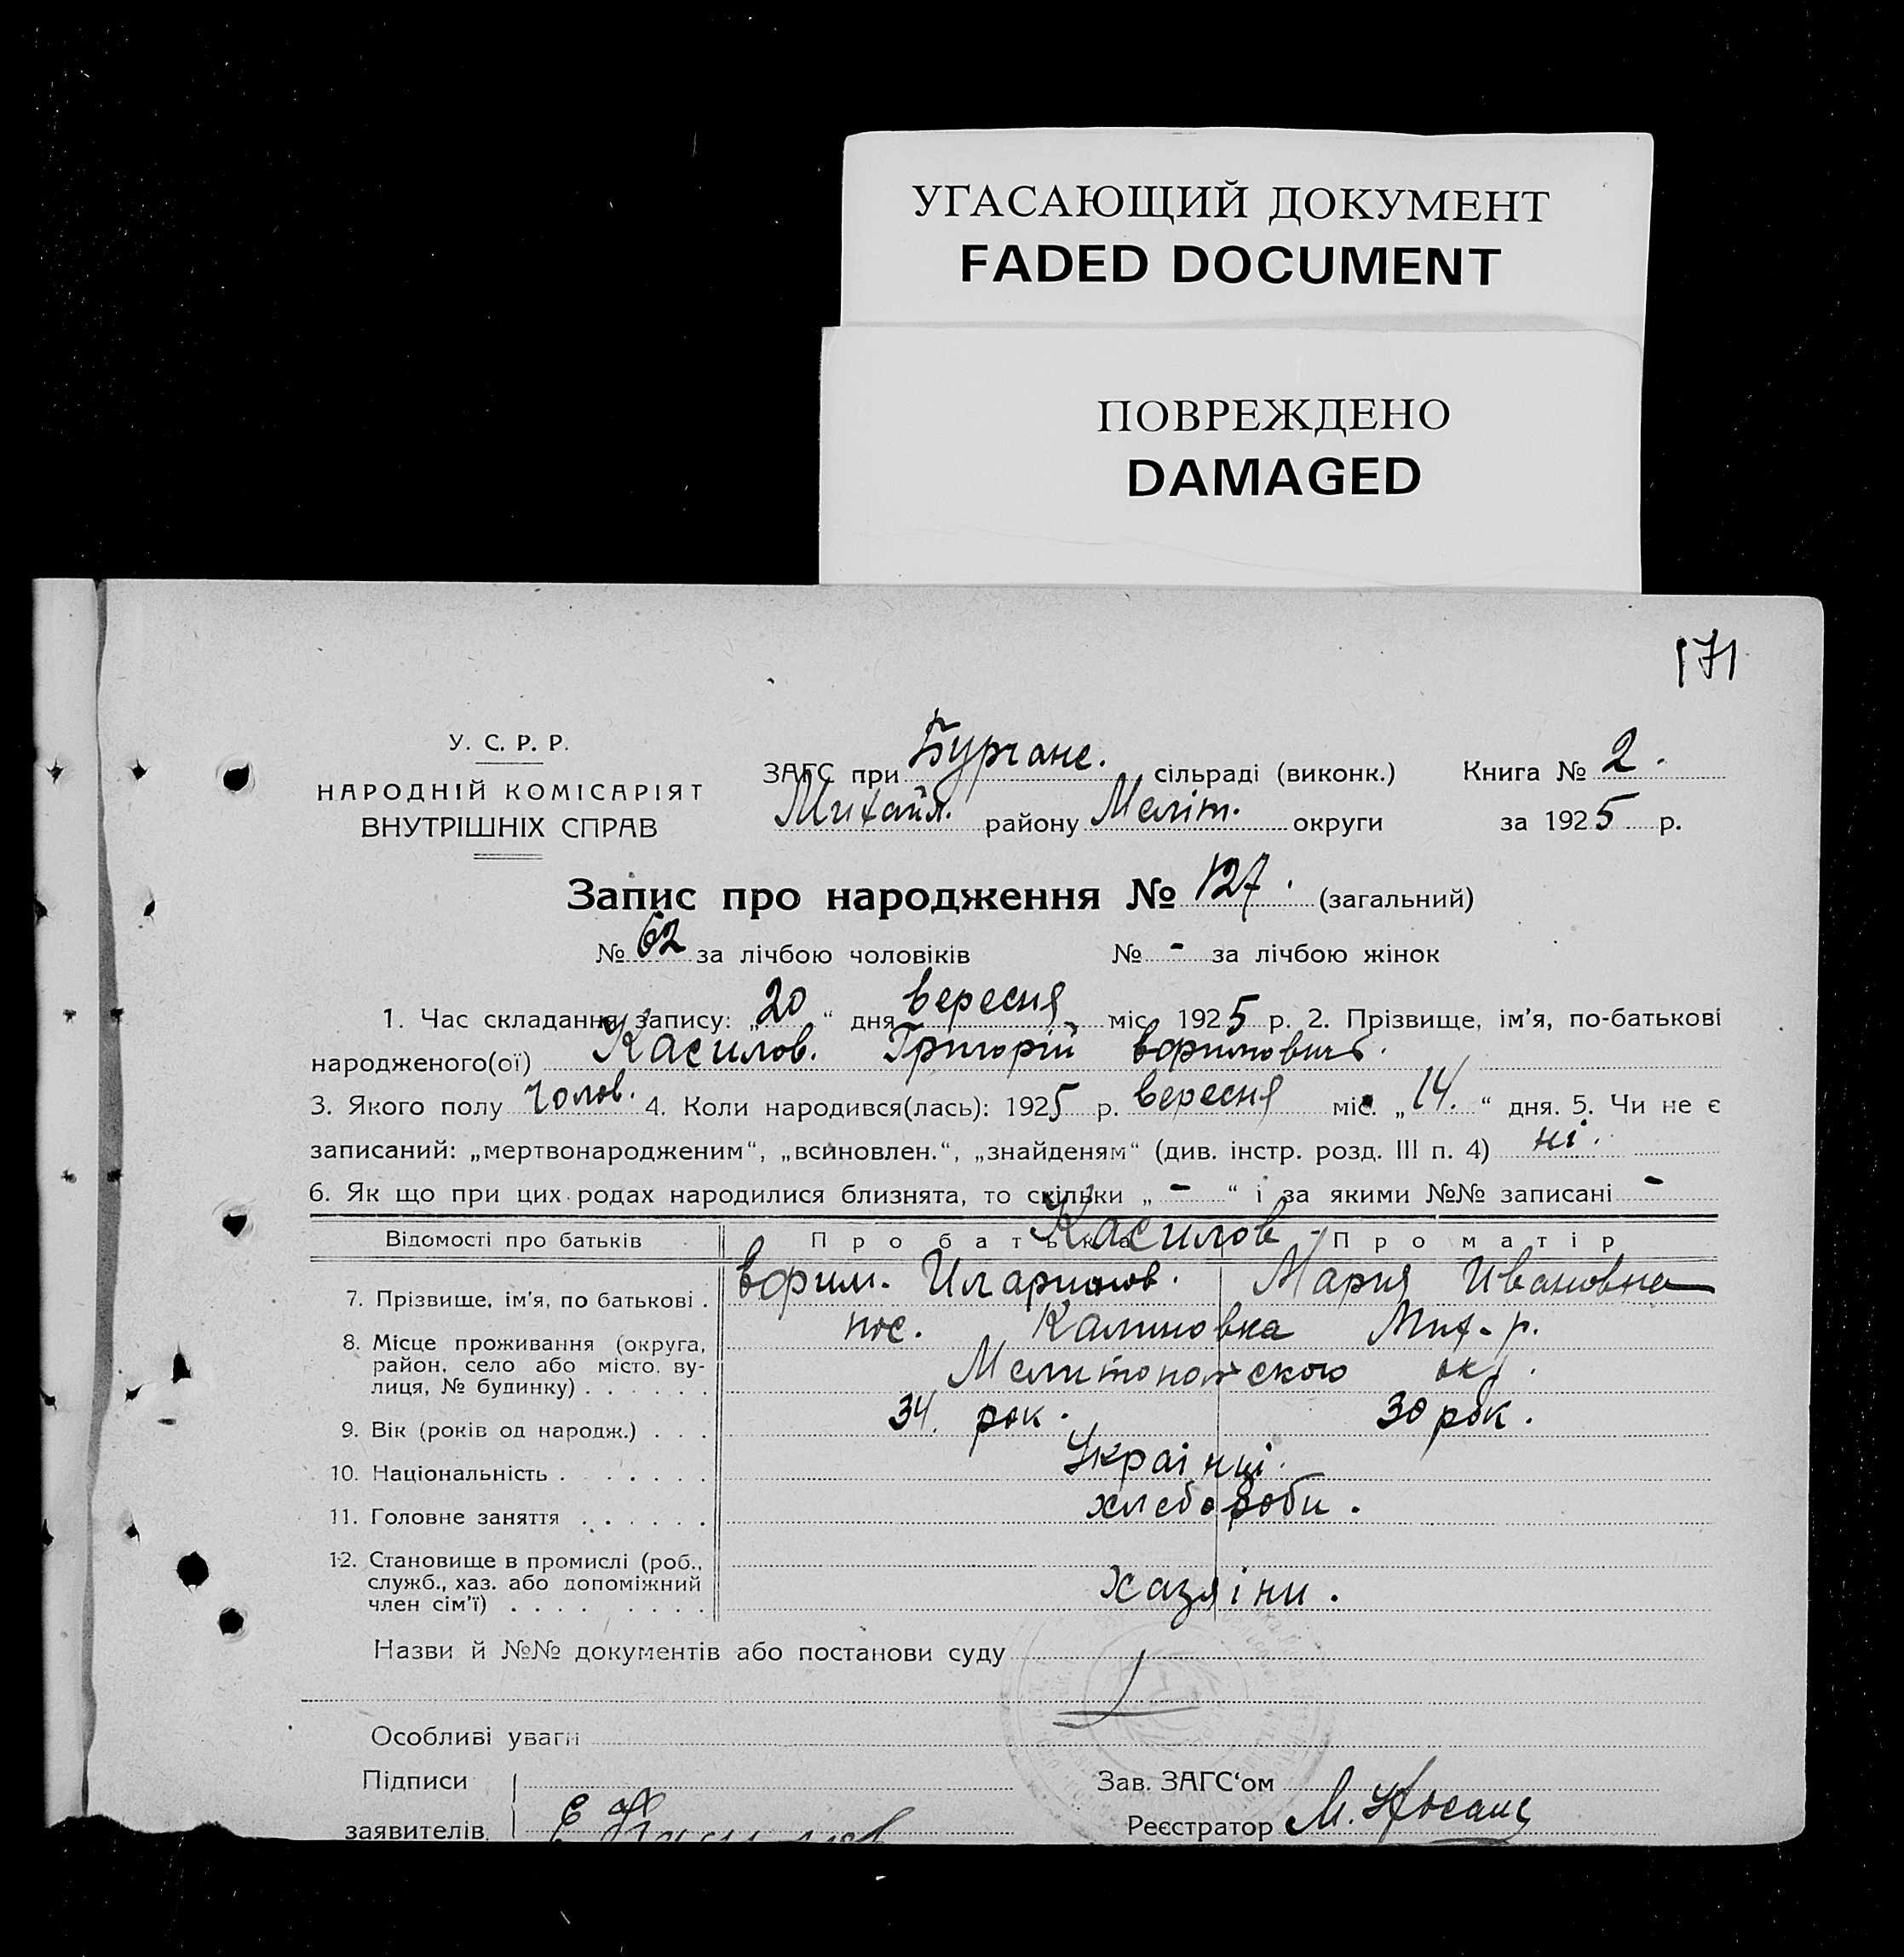 УГАСАЮЩИЙ ДОКУМЕНТ
FADED DOCUMENT
ПОВРЕЖДЕНО
DAMAGED
171
У. С. Р. Р.
НАРОДНІЙ КОМІСАРІЯТ
ВНУТРІШНІХ СПРАВ
ЗАГС при Бургане. сільраді (виконк.) Книга № 2.
Михайл. району Меліт. округи за 1925 р.
Запис про народження № 127. (загальний)
№ 62 за лічбою чоловіків № - за лічбою жінок
1. Час складання запису: „20“ дня вересня міс. 1925 р. 2. Прізвище, ім'я, по-батькові
народженого(ої) Касилов. Григорій Єфимович.
3. Якого полу чолов. 4. Коли народився(лась): 1925 р. вересня міс. „14.“ дня. 5. Чи не є
записаний: „мертвонародженим“, „всиновлен.“, „знайденям“ (див. інстр. розд. III п. 4) ні.
6. Як що при цих родах народилися близнята, то скільки „-“ і за якими №№ записані -
Відомості про батьків Про батька Касилов Про матір
7. Прізвище, ім'я, по батькові . Єфим. Иларионов. Мария Ивановна
8. Місце проживання (округа, пос. Калиновка Мих-р.
район, село або місто, ву-
лиця, № будинку) . . . . . . Мелитопольского ок.
9. Вік (років од народж.) . . . 34. рок. 30 рок.
10. Національність . . . . . . . Українці.
11. Головне заняття . . . . . . хлебороби.
12. Становище в промислі (роб.,
служб., хаз. або допоміжний
член сім'ї) . . . . . . . . . хазяіни.
Назви й №№ документів або постанови суду
Особливі уваги
Підписи Зав. ЗАГС'ом
заявителів Е Касилов Реєстратор М.